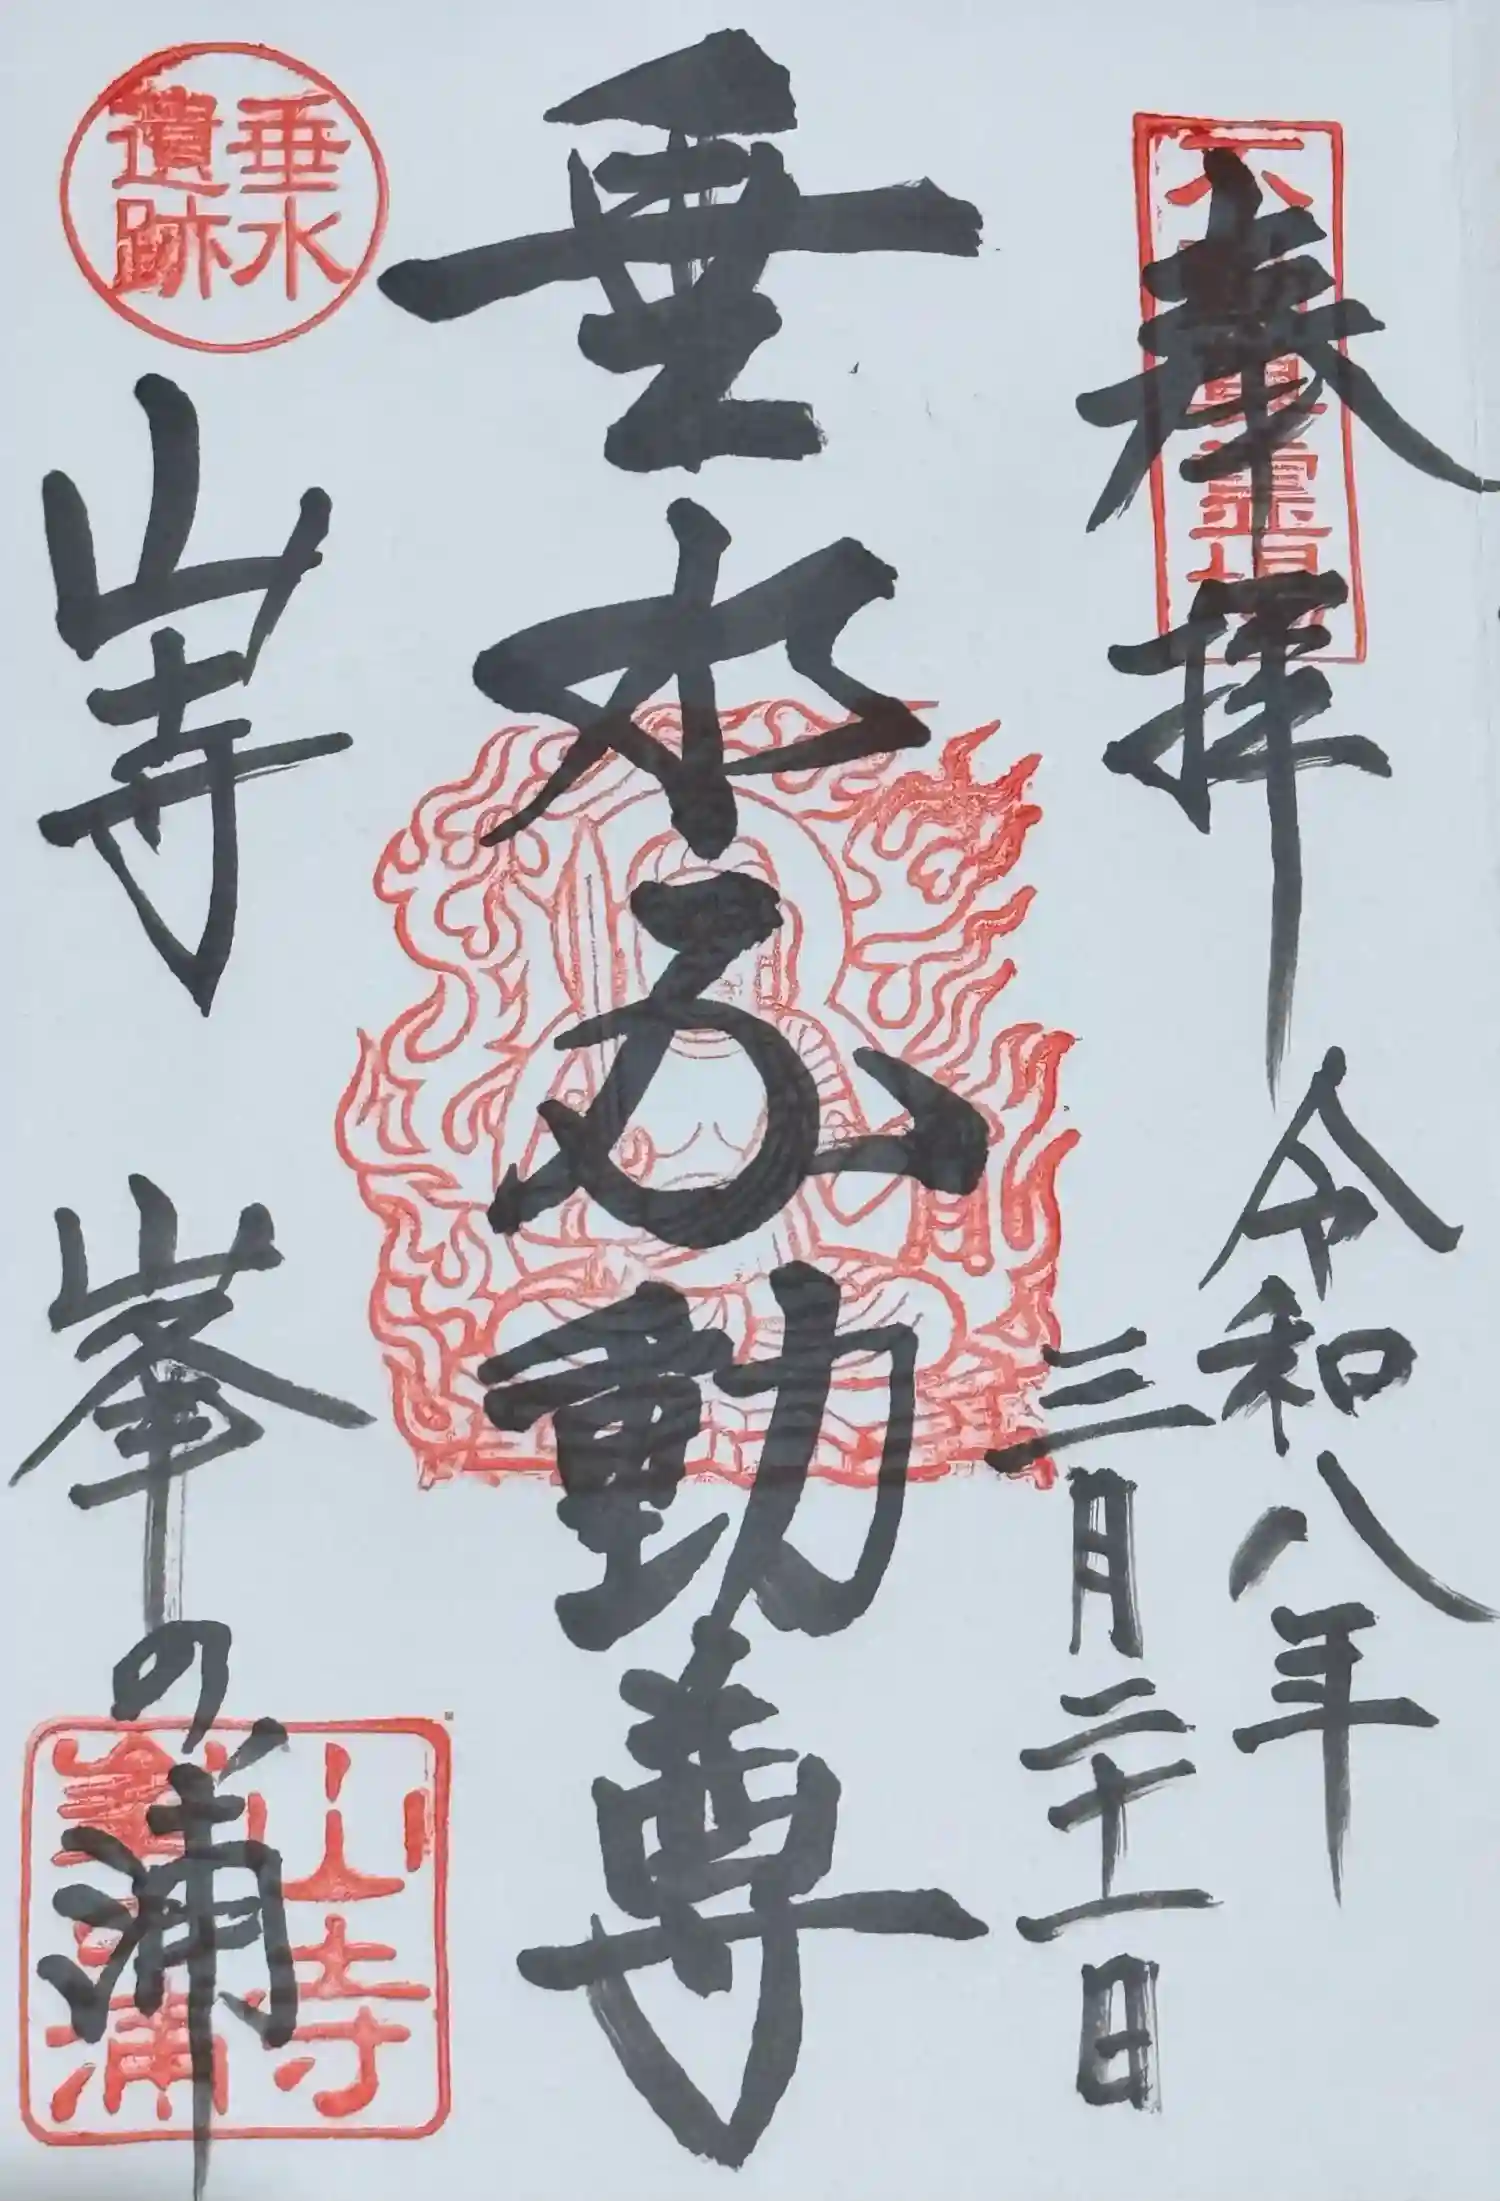 奉拝
令和八年
三月二十一日
垂水不動尊
山寺
峯の浦
垂水
遺跡
山寺